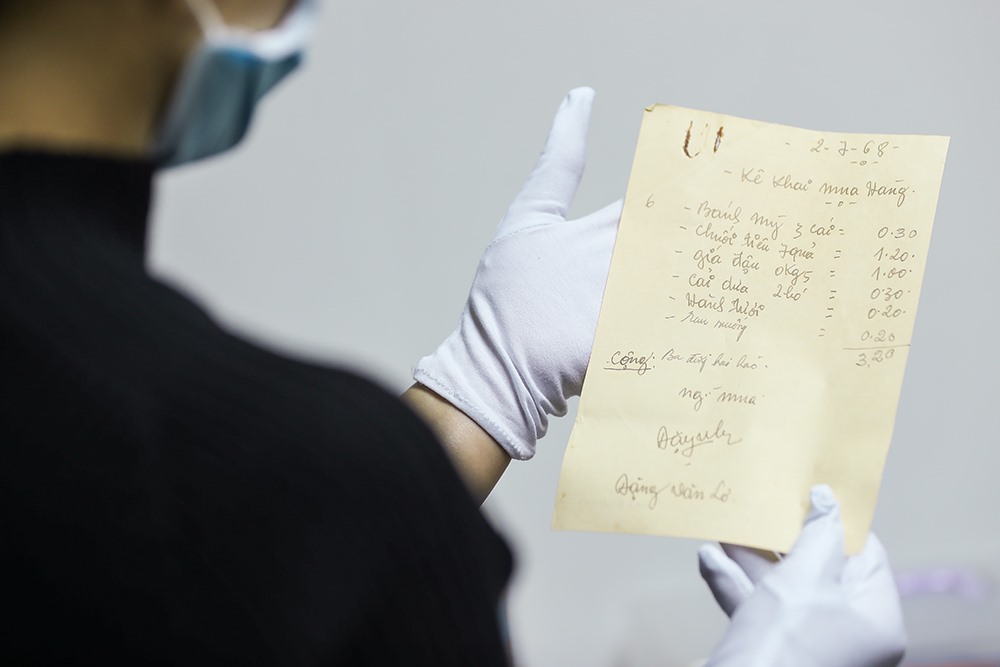 - 2-7-68-
- Kê Khai mua Hàng.
6 - Bánh mỳ 3 cái = 0.30
- Chuối tiêu 7quả = 1.20.
- giá đậu 0kg5 = 1.00.
- cải dưa 2bó = 0.30.
- Hành tươi = 0.20.
- rau muống = 0.20
3,20
Cộng: Ba đồng hai hào.
ngi mua
Đặng Văn Lơ